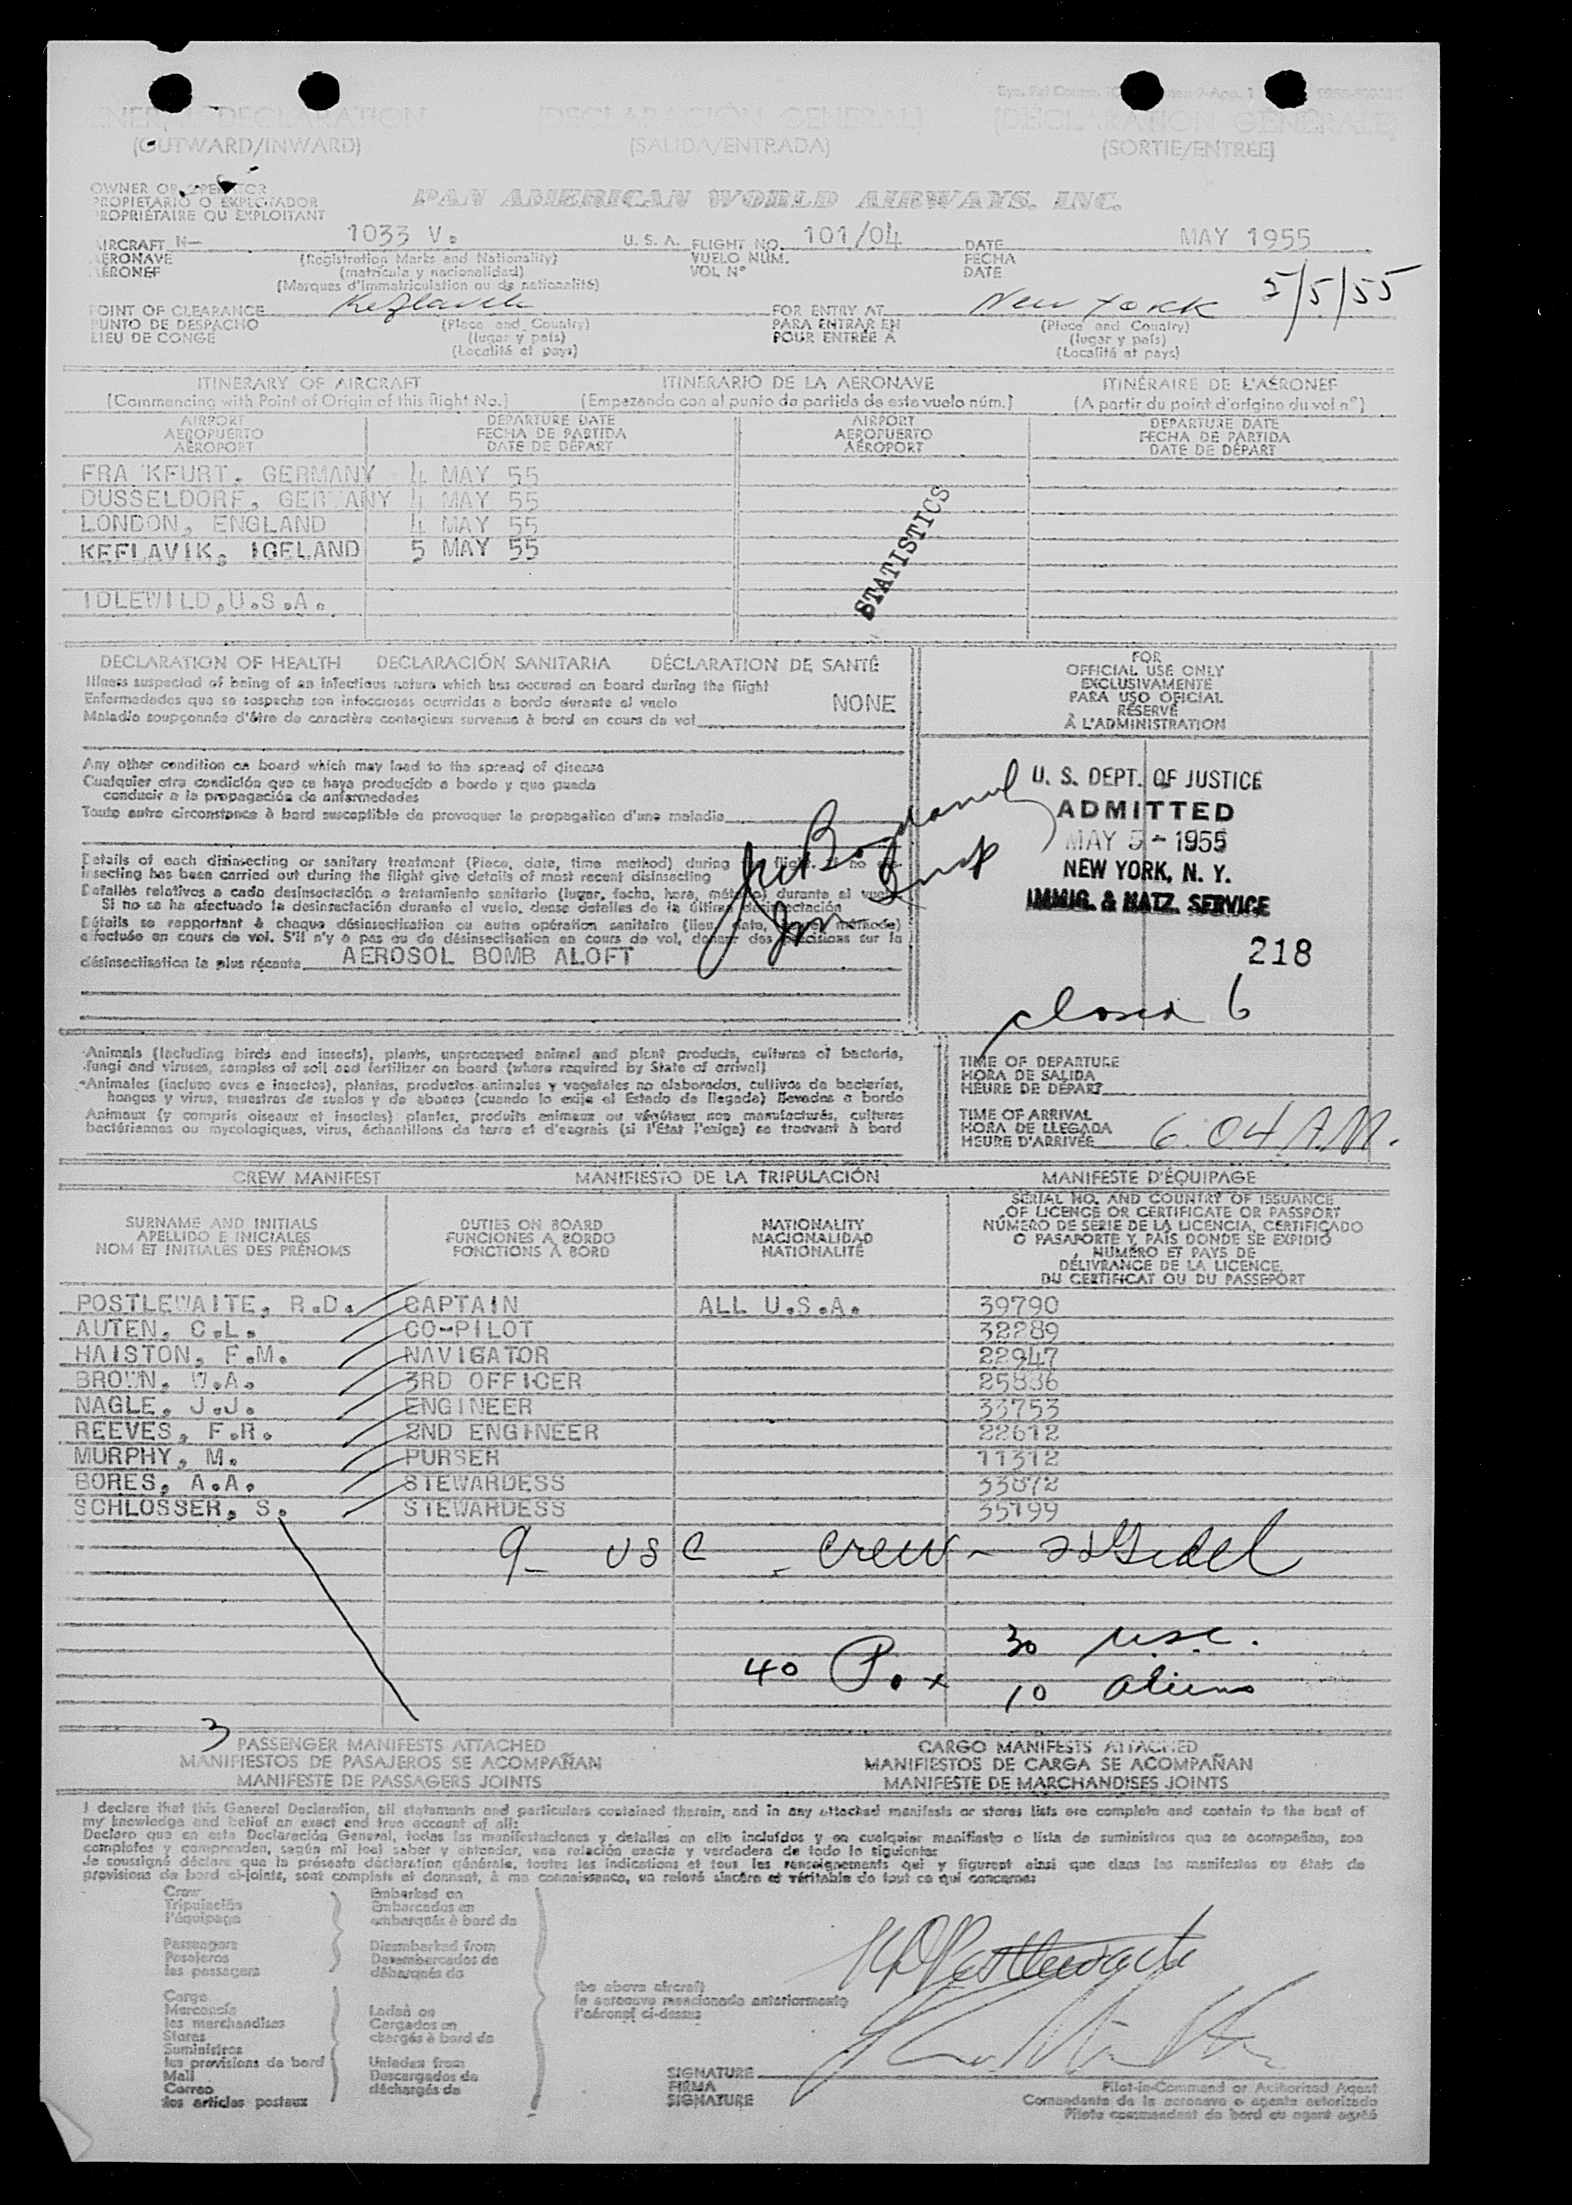 DECLARATION (DECLARACIÓN GENERAL) (DÉCLARATION GÉNÉRALE)
(OUTWARD/INWARD) (SALIDA/ENTRADA) (SORTIE/ENTRÉE)
OWNER OR OPERATOR
PROPIETARIO O EXPLOTADOR
PROPRIÉTAIRE OU EXPLOITANT
PAN AMERICAN WORLD AIRWAYS, INC.
AIRCRAFT N— 1033 V. U. S. A. FLIGHT NO. 101/04 DATE MAY 1955
AERONAVE (Registration Marks and Nationality) VUELO NÚM. FECHA
AÉRONEF (matrícula y nacionalidad) VOL Nº DATE
(Marques d'immatriculation ou de nationalité)
5/5/55
POINT OF CLEARANCE Keflavik FOR ENTRY AT New York
PUNTO DE DESPACHO (Place and Country) PARA ENTRAR EN (Place and Country)
LIEU DE CONGÉ (lugar y país) POUR ENTRÉE À (lugar y país)
(Localité et pays) (Localité et pays)
ITINERARY OF AIRCRAFT ITINERARIO DE LA AERONAVE ITINÉRAIRE DE L'AÉRONEF
(Commencing with Point of Origin of this flight No.) (Empezando con el punto de partida de este vuelo núm.) (A partir du point d'origine du vol nº)
AIRPORT DEPARTURE DATE AIRPORT DEPARTURE DATE
AEROPUERTO FECHA DE PARTIDA AEROPUERTO FECHA DE PARTIDA
AÉROPORT DATE DE DÉPART AÉROPORT DATE DE DÉPART
FRA KFURT, GERMANY 4 MAY 55
DUSSELDORF, GERMANY 4 MAY 55
LONDON, ENGLAND 4 MAY 55
KEFLAVIK, ICELAND 5 MAY 55
IDLEWILD,U.S.A.
STATISTICS
DECLARATION OF HEALTH DECLARACIÓN SANITARIA DÉCLARATION DE SANTÉ
Illness suspected of being of an infectious nature which has occured on board during the flight
Enfermedades que se sospecha son infecciosas ocurridas a bordo durante el vuelo NONE
Maladie soupçonnée d'être de caractère contagieux survenue à bord en cours de vol
FOR
OFFICIAL USE ONLY
EXCLUSIVAMENTE
PARA USO OFICIAL
RÉSERVÉ
À L'ADMINISTRATION
Any other condition on board which may lead to the spread of disease
Cualquier otra condición que se haya producido a bordo y que pueda
conducir a la propagación de enfermedades
Toute autre circonstance à bord susceptible de provoquer la propagation d'une maladie
Details of each disinsecting or sanitary treatment (Place, date, time method) during flight. If no
insecting has been carried out during the flight give details of most recent disinsecting
Detalles relativos a cada desinsectación o tratamiento sanitario (lugar, fecha, hora, método) durante el vuelo
Si no se ha efectuado la desinsectación durante el vuelo, dense detalles de la última desinsectación
Détails se rapportant à chaque désinsectisation ou autre opération sanitaire (lieu, date, méthode)
effectuée en cours de vol. S'il n'y a pas eu de désinsectisation en cours de vol, donner des précisions sur la
désinsectisation la plus récente AEROSOL BOMB ALOFT
U. S. DEPT. OF JUSTICE
ADMITTED
MAY 5 - 1955
NEW YORK, N. Y.
IMMIG. & NATZ. SERVICE
218
closed 6
Animals (including birds and insects), plants, unprocessed animal and plant products, cultures of bacteria,
fungi and viruses, samples of soil and fertilizer on board (where required by State of arrival)
Animales (incluso aves e insectos), plantas, productos animales y vegetales no elaborados, cultivos de bacterias,
hongos y virus, muestras de suelos y de abonos (cuando lo exija el Estado de llegada) llevados a bordo
Animaux (y compris oiseaux et insectes) plantes, produits animaux ou végétaux non manufacturés, cultures
bactériennes ou mycologiques, virus, échantillons de terre et d'engrais (si l'État l'exige) se trouvant à bord
TIME OF DEPARTURE
HORA DE SALIDA
HEURE DE DÉPART
TIME OF ARRIVAL
HORA DE LLEGADA
HEURE D'ARRIVÉE 6.04 A.M.
CREW MANIFEST MANIFIESTO DE LA TRIPULACIÓN MANIFESTE D'ÉQUIPAGE
SURNAME AND INITIALS DUTIES ON BOARD NATIONALITY
APELLIDO E INICIALES FUNCIONES A BORDO NACIONALIDAD
NOM ET INITIALES DES PRÉNOMS FONCTIONS À BORD NATIONALITÉ
SERIAL NO. AND COUNTRY OF ISSUANCE
OF LICENCE OR CERTIFICATE OR PASSPORT
NÚMERO DE SERIE DE LA LICENCIA, CERTIFICADO
O PASAPORTE Y PAÍS DONDE SE EXPIDIÓ
NUMÉRO ET PAYS DE
DÉLIVRANCE DE LA LICENCE,
DU CERTIFICAT OU DU PASSEPORT
POSTLEWAITE, R.D. CAPTAIN ALL U.S.A. 39790
AUTEN, C.L. CO-PILOT 32289
HAISTON, F.M. NAVIGATOR 22947
BROWN, W.A. 3RD OFFICER 25836
NAGLE, J.J. ENGINEER 33753
REEVES, F.R. 2ND ENGINEER 22612
MURPHY, M. PURSER 11312
BORES, A.A. STEWARDESS 33872
SCHLOSSER, S. STEWARDESS 35199
9 - USC - crew -
30 usc.
40 P. x
10 aliens
3 PASSENGER MANIFESTS ATTACHED CARGO MANIFESTS ATTACHED
MANIFIESTOS DE PASAJEROS SE ACOMPAÑAN MANIFIESTOS DE CARGA SE ACOMPAÑAN
MANIFESTE DE PASSAGERS JOINTS MANIFESTE DE MARCHANDISES JOINTS
I declare that this General Declaration, all statements and particulars contained therein, and in any attached manifests or stores lists are complete and contain to the best of
my knowledge and belief an exact and true account of all:
Declaro que en esta Declaración General, todas las manifestaciones y detalles en ella incluídos y en cualquier manifiesto o lista de suministros que se acompañan, son
completos y comprenden, según mi leal saber y entender, una relación exacta y verdadera de todo lo siguiente:
Je soussigné déclare que la présente déclaration générale, toutes les indications et tous les renseignements qui y figurent ainsi que dans les manifestes ou états de
provisions de bord ci-joints, sont complets et donnent, à ma connaissance, un relevé sincère et véritable de tout ce qui concerne:
Crew Embarked on
Tripulación Embarcados en
l'équipage embarqués à bord de
Passengers Disembarked from
Pasajeros Desembarcados de
les passagers débarqués de
the above aircraft
la aeronave mencionada anteriormente
l'aéronef ci-dessus
Cargo
Mercancía Laden on
les marchandises Cargados en
Stores chargés à bord de
Suministros
les provisions de bord Unladen from
Mail Descargados de
Correo déchargés de
les articles postaux
RD Postlewaite
SIGNATURE
FIRMA
SIGNATURE
Pilot-in-Command or Authorized Agent
Comandante de la aeronave o agente autorizado
Pilote commandant de bord ou agent agréé